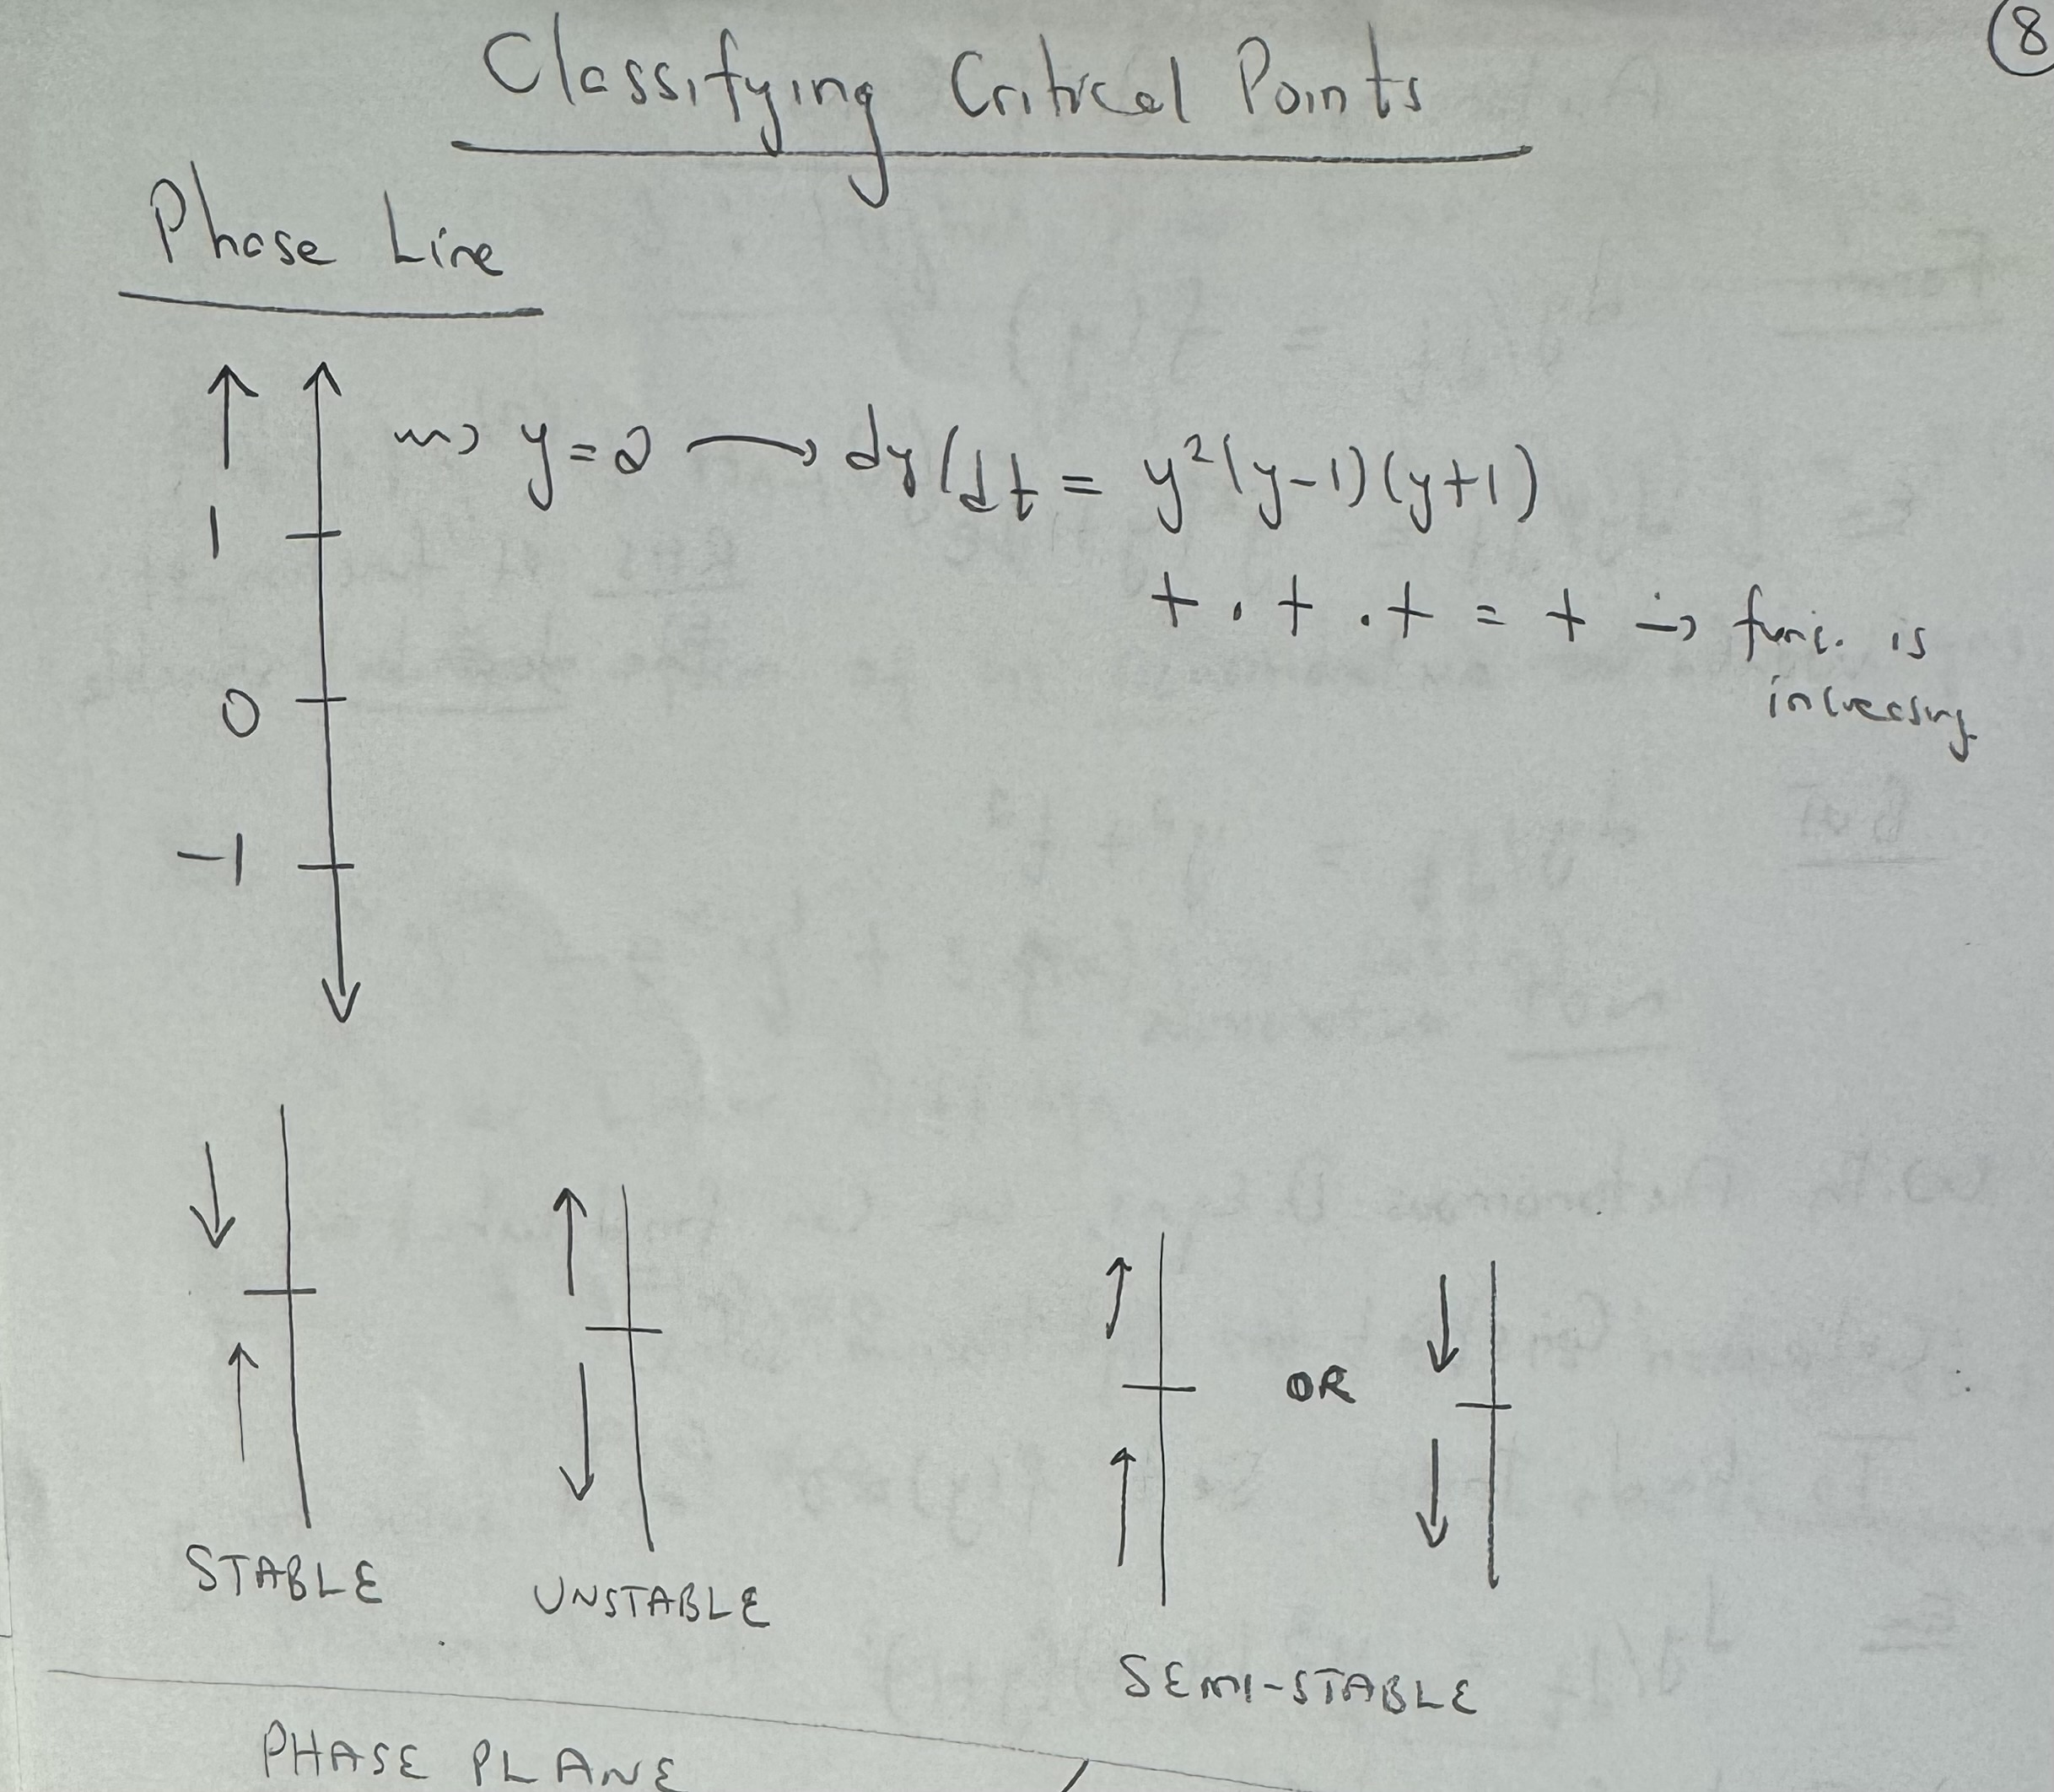 8
Classifying Critical Points
Phase Line
y=2 → dy/dt = y²(y-1)(y+1)
1
+ · + · + = + → func. is
increasing
0
-1
STABLE
UNSTABLE
OR
SEMI-STABLE
PHASE PLANE